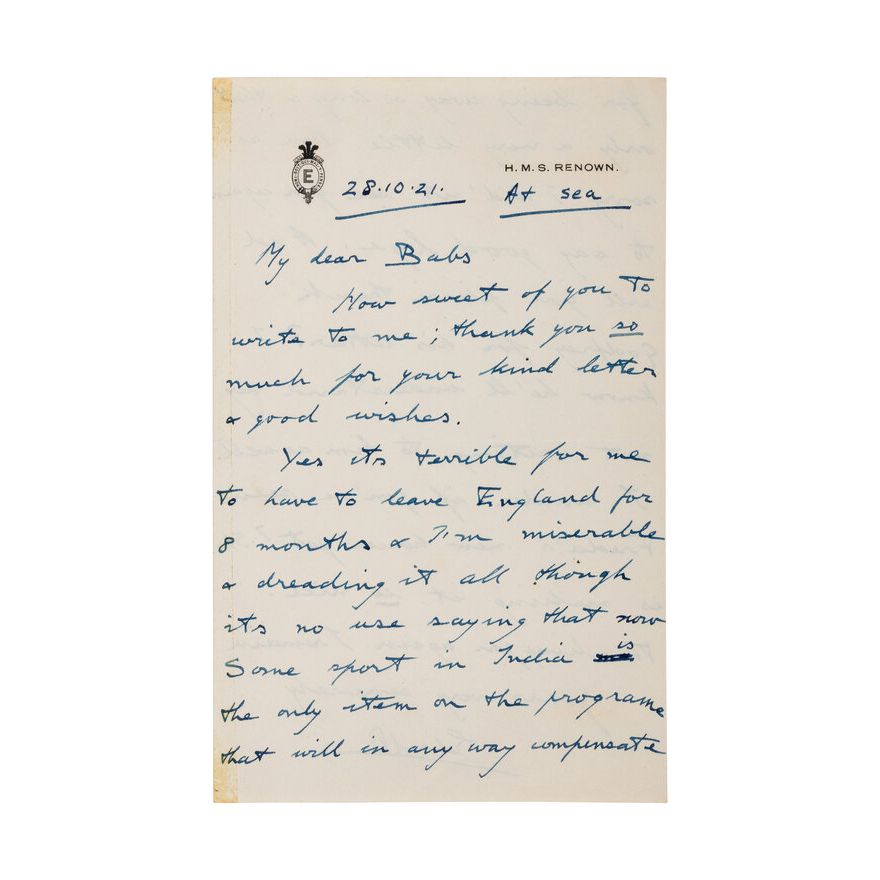 E
H. M. S. RENOWN.
28.10.21. At sea
My dear Babs
How sweet of you to
write to me; thank you so
much for your kind letter
& good wishes.
Yes its terrible for me
to have to leave England for
8 months & I'm miserable
& dreading it all though
its no use saying that now
Some sport in India is
the only item on the programe
that will in any way compensate